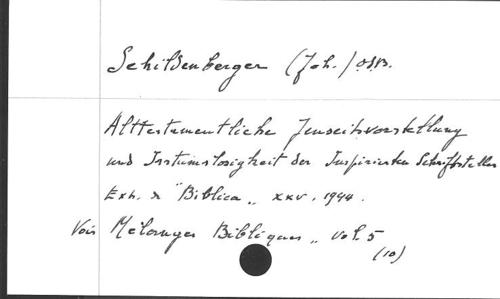 Schildenberger (Joh.) O.S.B.
Alttestamentliche Jenseitsvorstellung
und Irrtumslosigkeit der Inspirierten Schriftsteller
Exh. de "Biblica" XXV, 1944.
Voir Mélanges Bibliques, vol. 5
(10)